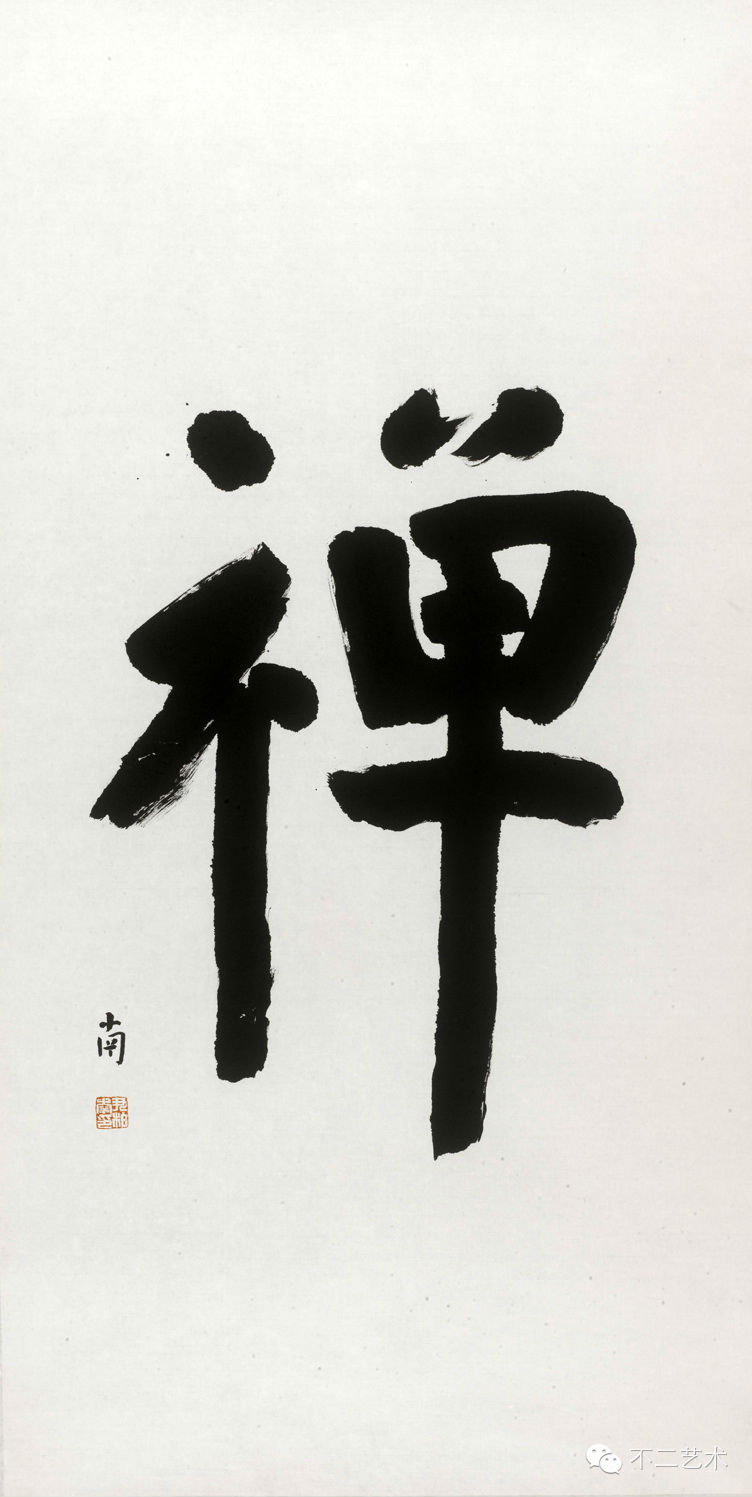 禅
南
不二艺术